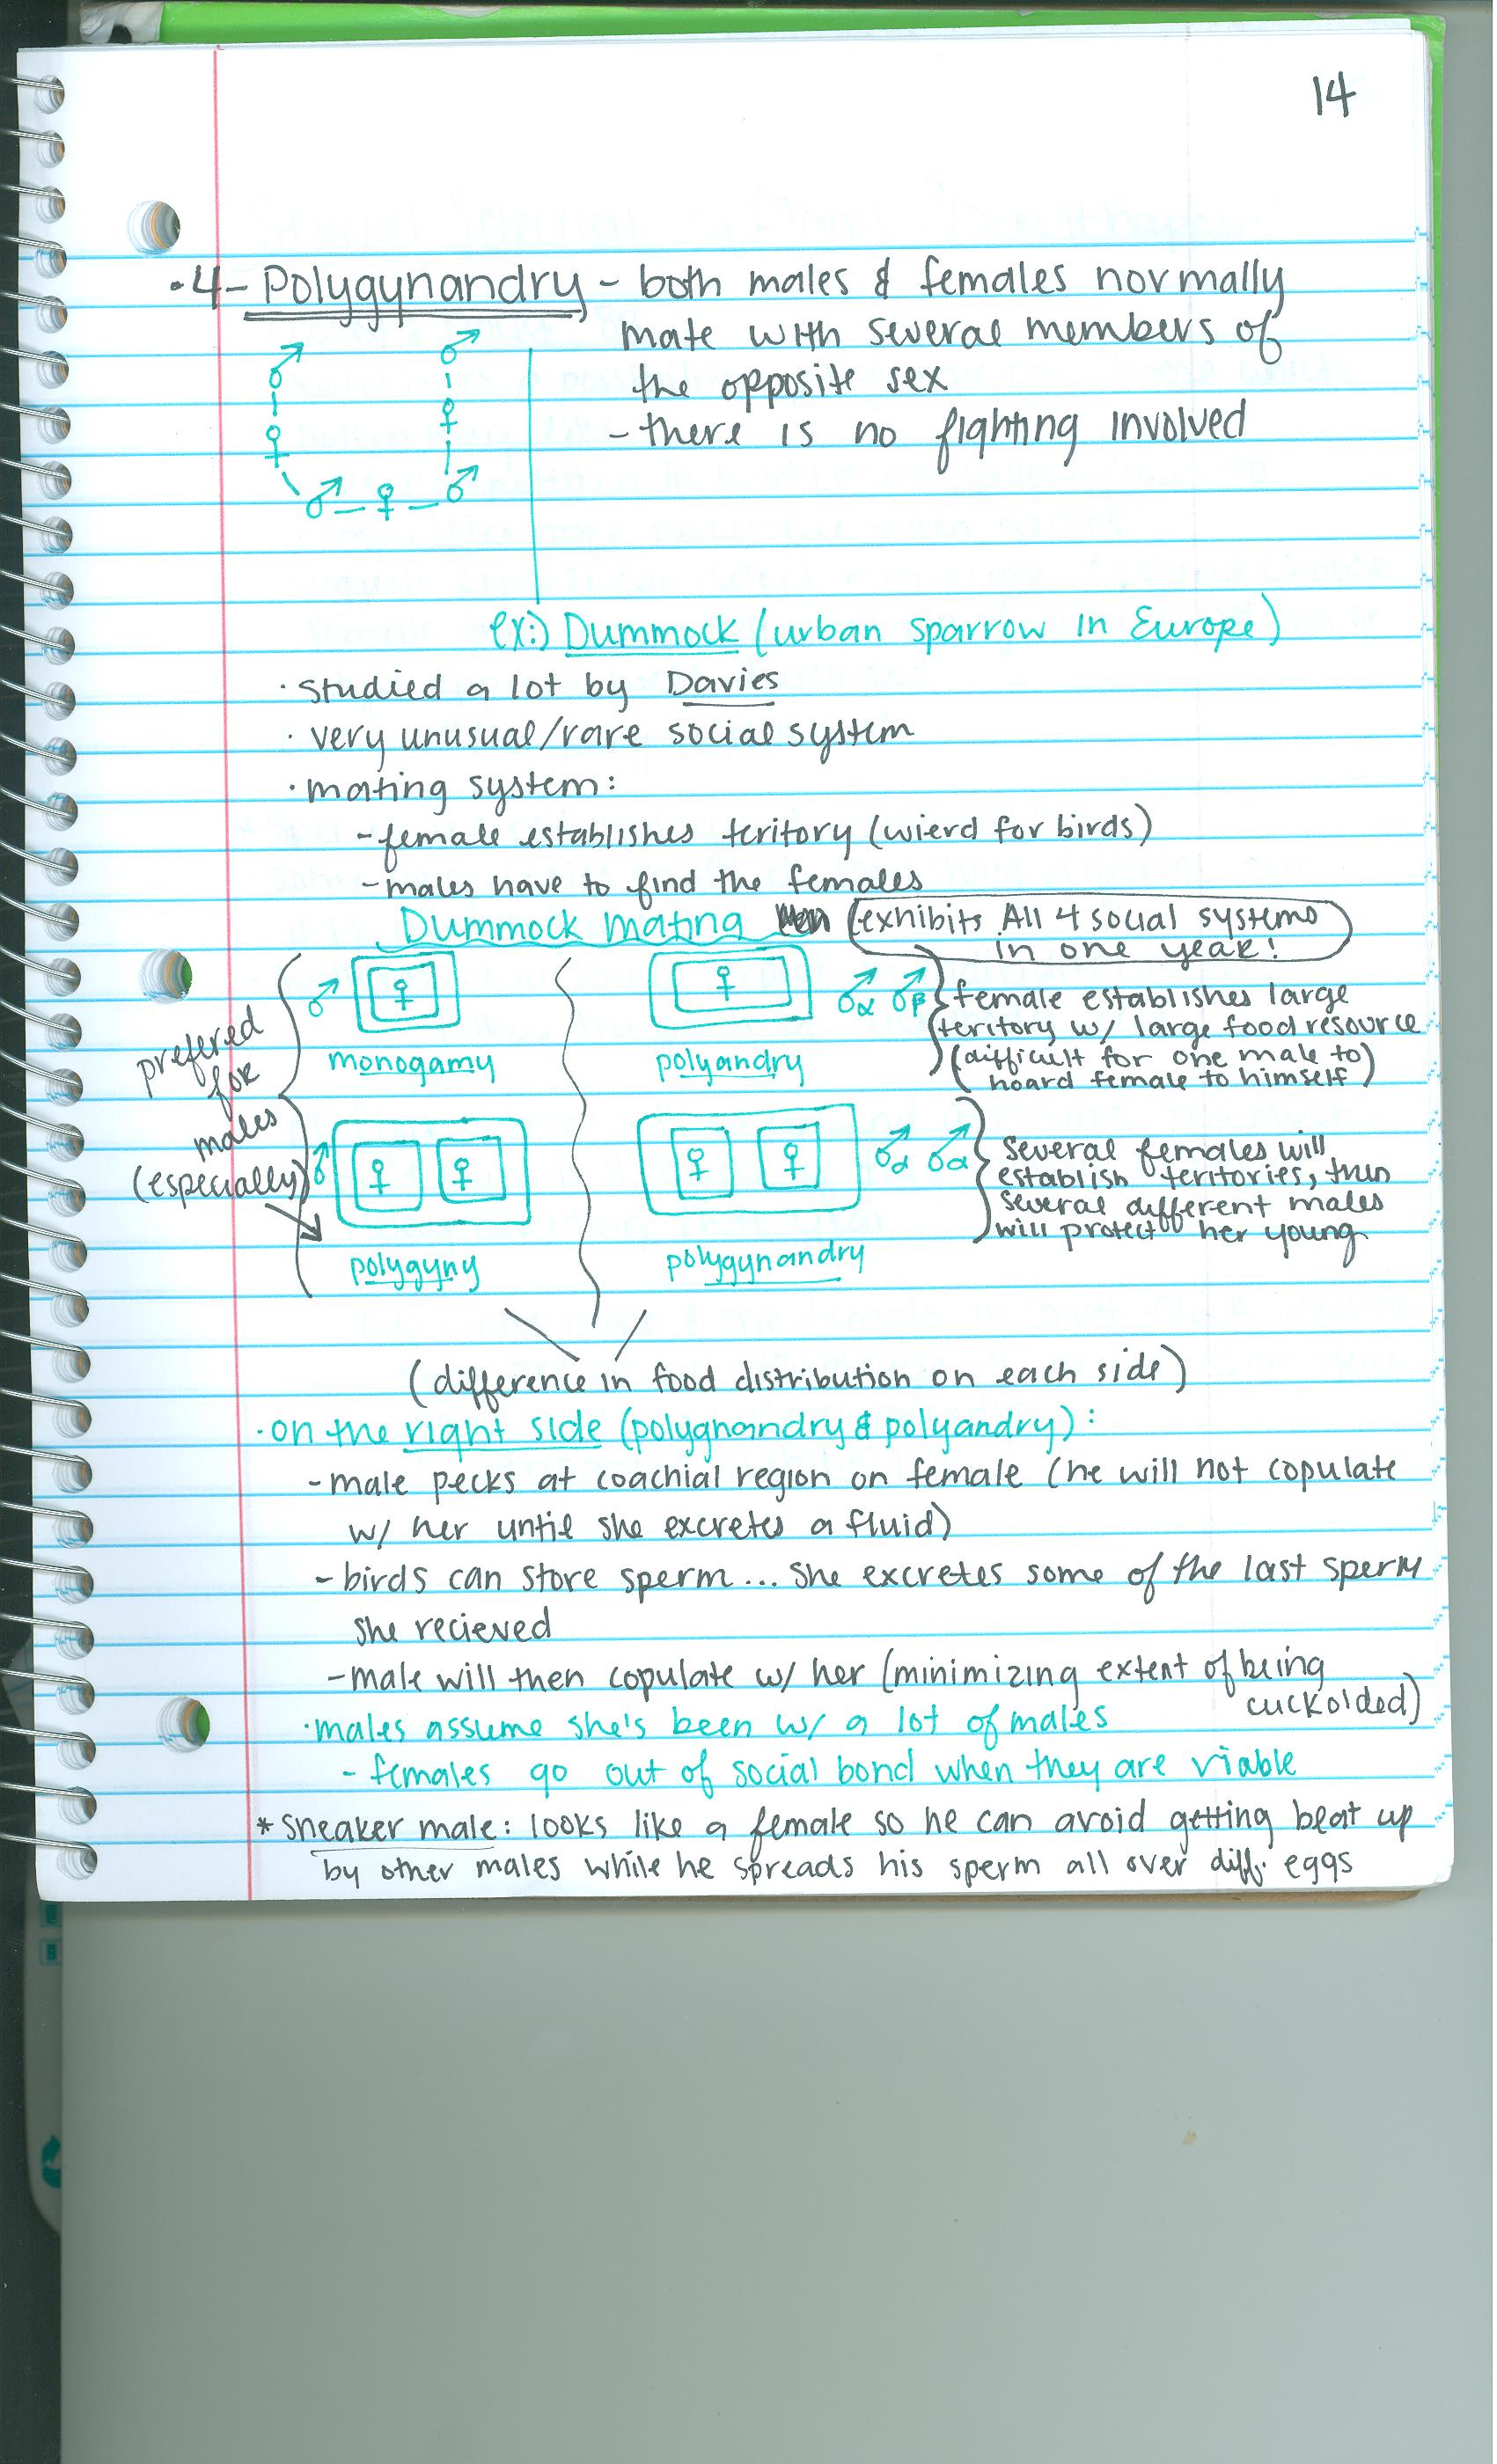 14
·4- Polygynandry - both males & females normally
mate with several members of
the opposite sex
- there is no fighting involved
♂ ♂
♀ ♀
♂ - ♀ - ♂
ex:) Dummock (urban sparrow in Europe)
· studied a lot by Davies
· very unusual/rare social system
· mating system:
- female establishes teritory (wierd for birds)
- males have to find the females
Dummock mating (exhibits All 4 social systems
in one year!
♂ ♀ ♀ ♂α ♂β
monogamy polyandry
female establishes large
teritory w/ large food resource
(difficult for one male to)
(hoard female to himself)
prefered
for
males
(especially)
♂ ♀ ♀ ♀ ♀ ♂α ♂α
polygyny polygynandry
several females will
establish teritories, then
several different males
will protect her young
(difference in food distribution on each side)
· on the right side (polygnandry & polyandry):
- male pecks at coachial region on female (he will not copulate
w/ her until she excretes a fluid)
- birds can store sperm... she excretes some of the last sperm
she recieved
- male will then copulate w/ her (minimizing extent of being
cuckolded)
· males assume she's been w/ a lot of males
- females go out of social bond when they are viable
* sneaker male: looks like a female so he can avoid getting beat up
by other males while he spreads his sperm all over diff. eggs